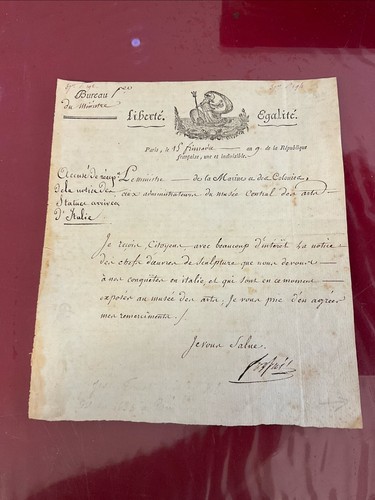 Bureau
du Ministre
Liberté. Egalité.
Paris, le 15 frimaire an 9. de la République
française, une et indivisible.
Le ministre de la Marine et des Colonies
Accusé de récep.on
De la notice des
Statues arrivées
D'Italie
aux administrateurs du musée Central des arts
Je reçois, Citoyens, avec beaucoup d'intérêt la notice
des chefs d'œuvres de Sculpture que nous devons
à nos conquêtes en italie, et qui sont en ce moment
exposés au musée des arts, Je vous prie d'en agréer
mes remerciments ./.
Je vous Salue
forfait